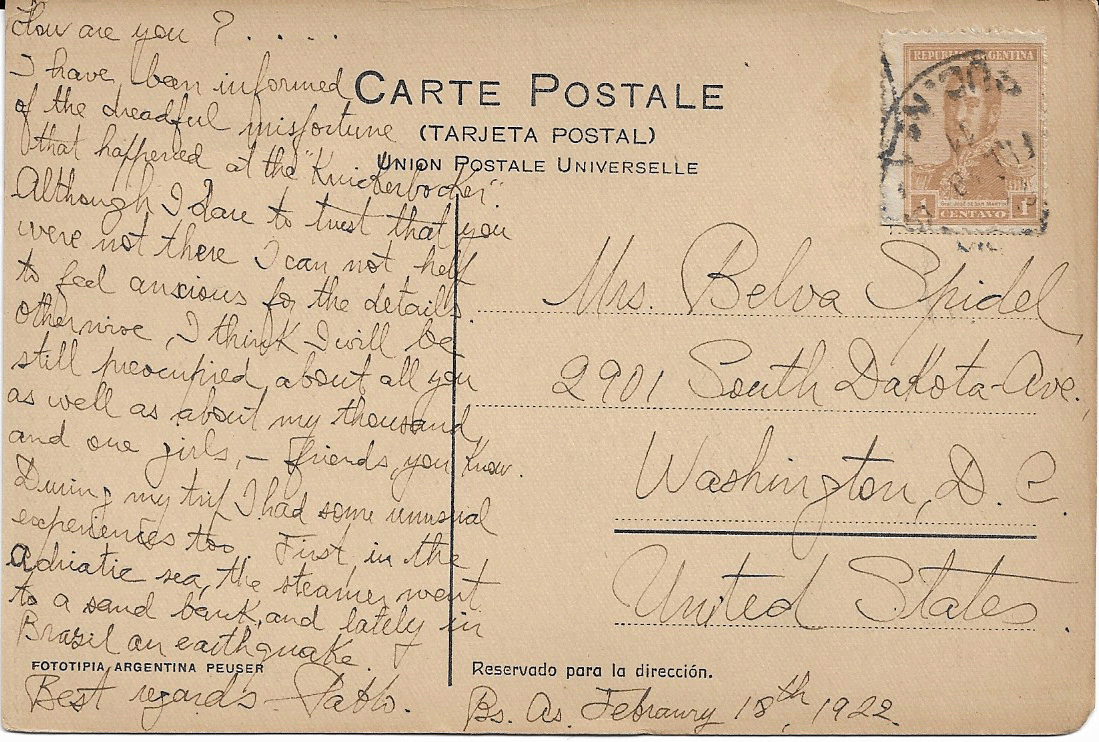 How are you ? . . . . .
I have been informed
of the dreadful misfortune
that happened at the "Knickerbocker".
Although I dare to trust that you
were not there I can not help
to feel anxious for the details.
otherwise, I think I will be
still preocupied about all you
as well as about my thousand
and one girls, — friends, you know.
During my trip I had some unusual
experiencies too. First, in the
Adriatic sea, the steamer went
to a sand bank, and lately in
Brazil an earthquake.
FOTOTIPIA ARGENTINA PEUSER
Best regards — Pablo.
CARTE POSTALE
(TARJETA POSTAL)
UNION POSTALE UNIVERSELLE
REPUBLICA ARGENTINA
1 CENTAVO 1
Mrs. Belva Spidel,
2901 South Dakota Ave.,
Washington, D. C.
United States.
Reservado para la dirección.
Bs. As. Febraury 18th, 1922.